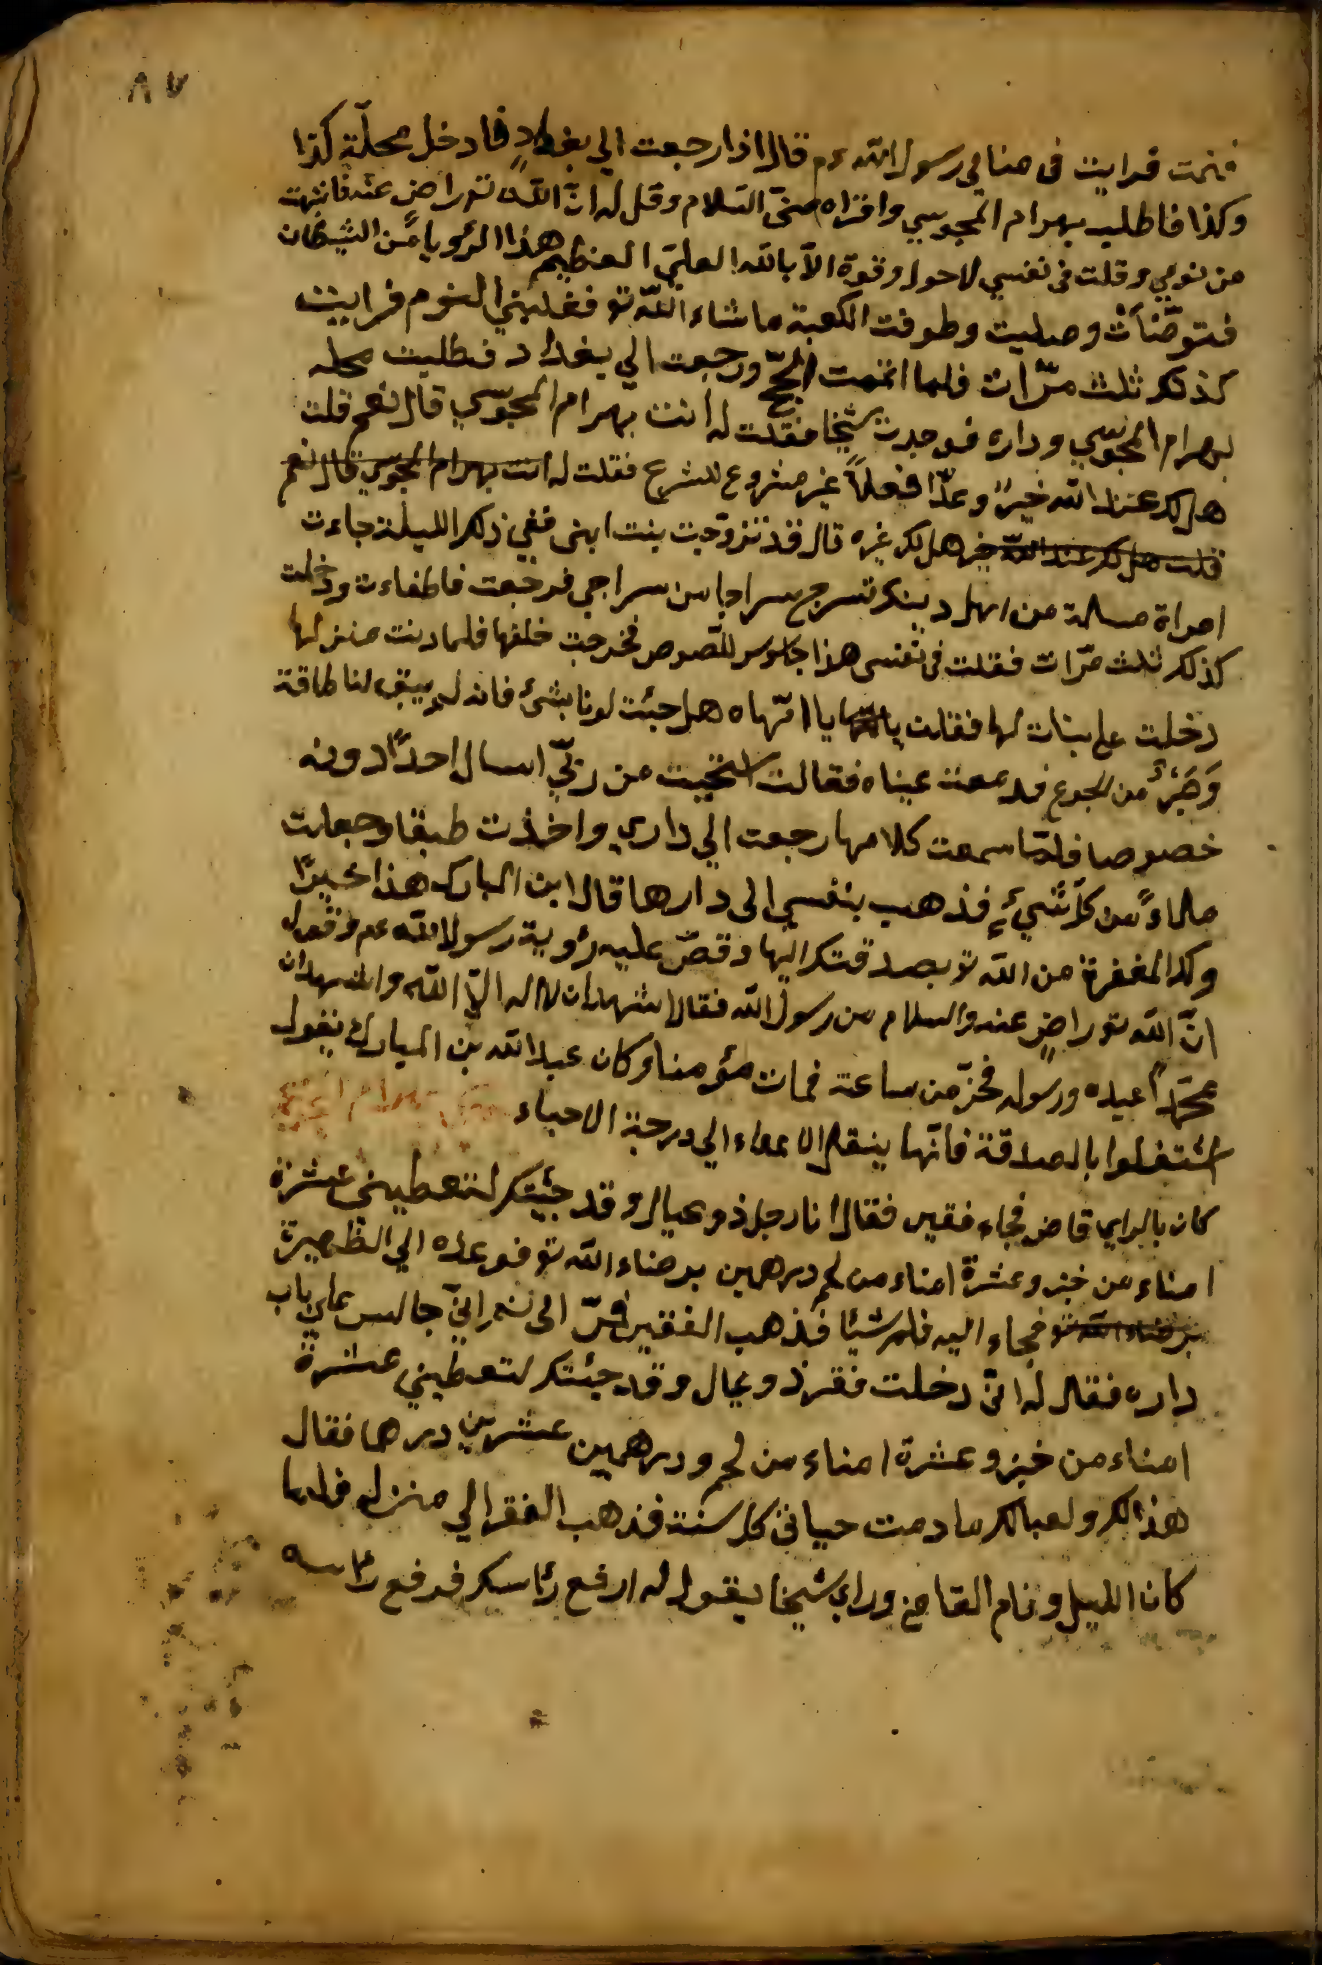 ٨٧
فنمت فرايت في منامي رسول الله عم قال اذا رجعت الي بغداد فادخل محلّة كذا
وكذا فاطلب بهرام المجوسي واقراه منّي السّلام وقل له انّ الله تو راض عنه فانتبهت
من نومي وقلت في نفسي لا حول وقوة الاّ بالله العليّ العظيم هذا الرؤيا من الشيطان
فتوضّأت وصليت وطوفت الكعبة ما شاء الله تو فغلبني النوم فرايت
كذلك ثلث مرّات فلما اتممت الحجّ ورجعت الي بغداد فطلبت محله
بهرام المجوسي وداره فوجدت شيخا فقلت له انت بهرام المجوسي قال نعم قلت
هل لك عند الله خير وعدّا فعلاً غير مشروع للشرع فقلت له انت بهرام المجوسي قال نعم
قلت هل لك عند الله خير هل لك غيره قال قد تزوّجت بنت ابنى ففي ذلك الليلة جاءت
امراة مسلمة من اهل دينك تسرج سراجا من سراجي فرجعت فاطفاءت ودخلت
كذلك ثلث مرّات فقلت في نفسى هذا جاسوس للّصوص فخرجت خلفها فلما دنت منزلها
دخلت علي بنات لها فقلن يا امّاه هل جئت لونا بشئ فانه لم يبق لنا طاقة
وصبر من الجوع فدمعت عيناه فقالت استحييت من ربّي اسال احدًا دونه
خصوصا فلمّا سمعت كلامها رجعت الي داري واخذت طبقا وجعلت
ملاءً من كلّ شيءٍ فذهب بنفسي الى دارها قال ابن المبارك هذا خيرًا
ولك المغفرة من الله تو بصدقتك اليها وقصّ عليه رؤية رسول الله عم وقوله
انّ الله تو راضٍ عنه والسلام من رسول الله فقال اشهد ان لا اله الاّ الله واشهد ان
محمّداً عبده ورسوله فخرّ من ساعته فمات مؤمنا وكان عبد الله بن المبارك يقول
اشتغلوا بالصدقة فانّها ينقل الاعداء الي درجة الاحباء
كان بالراي قاض فجاء فقير فقال انا رجل ذو عيال وقد جئتك لتعطيني عشرة
امناء من خبز وعشرة امناء من لحم ودرهمين برضاء الله تو فوعده الي الظهيرة
برضاء الله تو فجاء اليه فلم شيئا فذهب الفقير فمرّ الى نصرانيّ جالس على باب
داره فقال له انّي دخلت فقر ذو عيال وقد جئتك لتعطيني عشرة
امناء من خبز وعشرة امناء من لحم ودرهمين عشرين درهما فقال
هذا لك ولعيالك ما دمت حيا في كل سنة فذهب الفقر الي منزله فلما
كان الليل ونام القاضي وراي شيخا يقول له ارفع رئاسك فرفع رئاسه